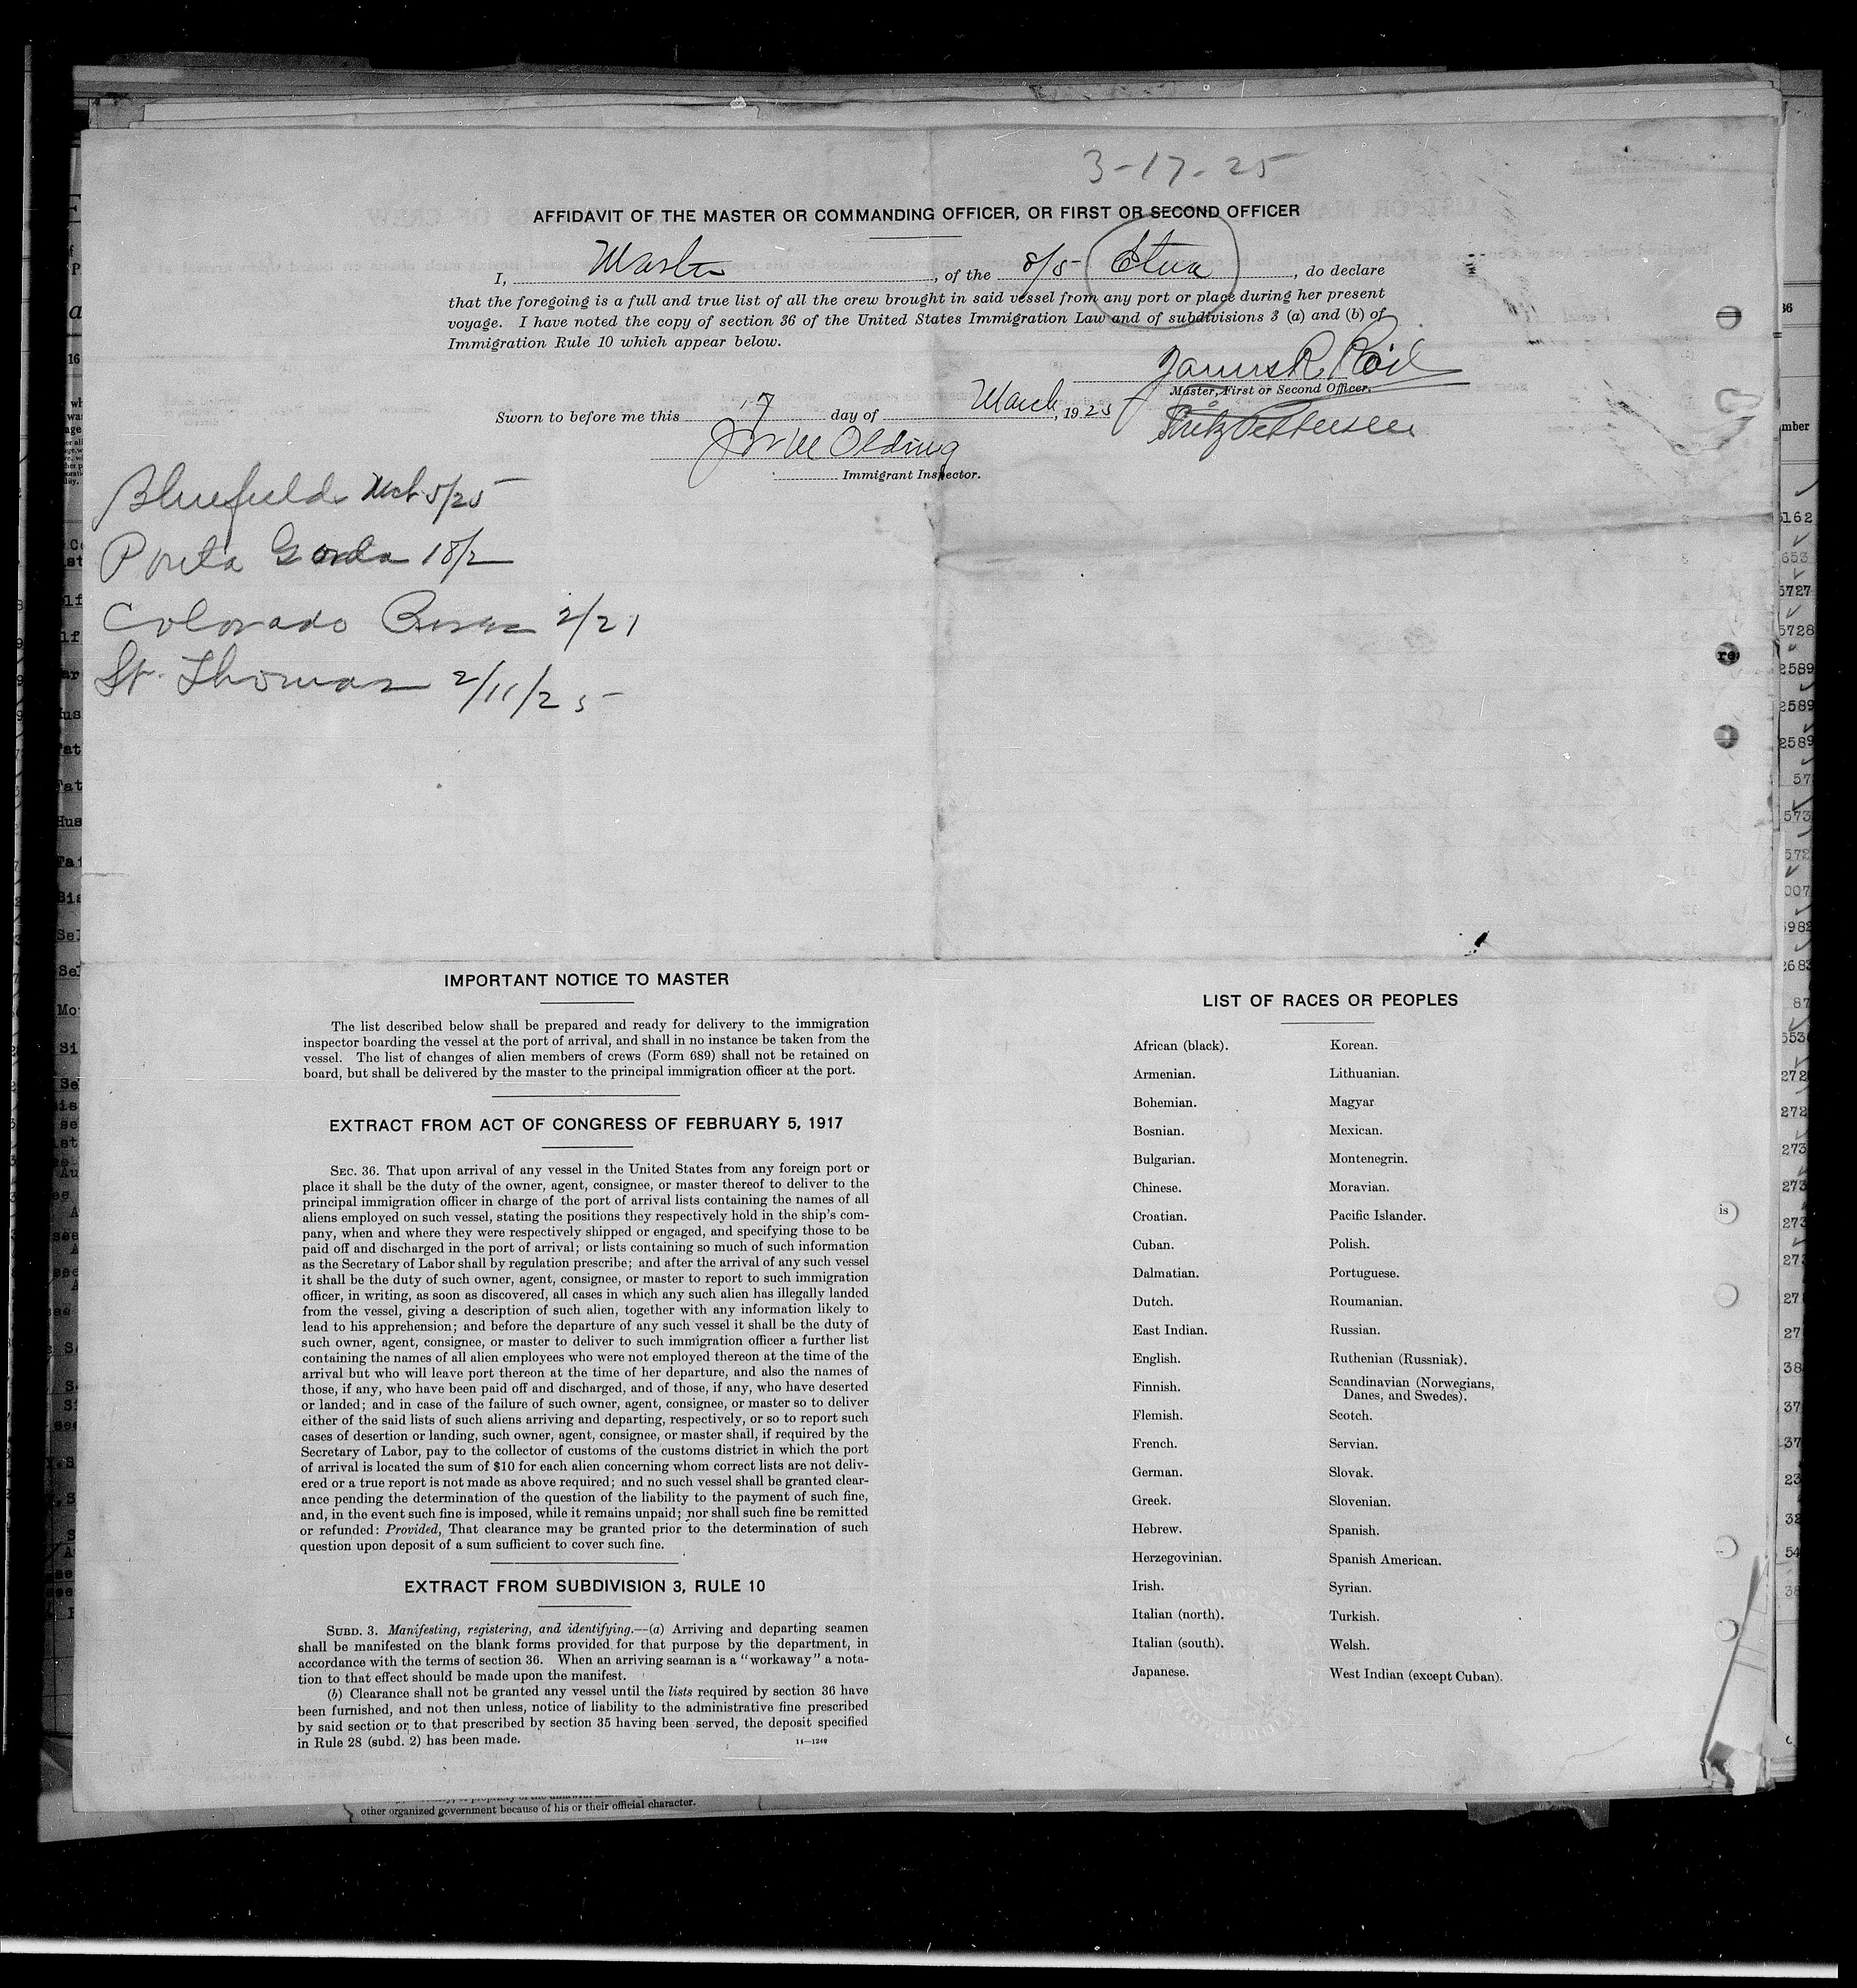 3-17-25
AFFIDAVIT OF THE MASTER OR COMMANDING OFFICER, OR FIRST OR SECOND OFFICER
I, Master, of the S/S Etna, do declare
that the foregoing is a full and true list of all the crew brought in said vessel from any port or place during her present
voyage. I have noted the copy of section 36 of the United States Immigration Law and of subdivisions 3 (a) and (b) of
Immigration Rule 10 which appear below.
James R.
Master, First or Second Officer.
Sworn to before me this 17 day of March, 1925
Fritz Pettersen
Olding
Immigrant Inspector.
Bluefields Mch 5/25
Punta Gorda 18/2
Colorado 2/21
St. Thomas 2/11/25
IMPORTANT NOTICE TO MASTER
The list described below shall be prepared and ready for delivery to the immigration
inspector boarding the vessel at the port of arrival, and shall in no instance be taken from the
vessel. The list of changes of alien members of crews (Form 689) shall not be retained on
board, but shall be delivered by the master to the principal immigration officer at the port.
EXTRACT FROM ACT OF CONGRESS OF FEBRUARY 5, 1917
SEC. 36. That upon arrival of any vessel in the United States from any foreign port or
place it shall be the duty of the owner, agent, consignee, or master thereof to deliver to the
principal immigration officer in charge of the port of arrival lists containing the names of all
aliens employed on such vessel, stating the positions they respectively hold in the ship's com-
pany, when and where they were respectively shipped or engaged, and specifying those to be
paid off and discharged in the port of arrival; or lists containing so much of such information
as the Secretary of Labor shall by regulation prescribe; and after the arrival of any such vessel
it shall be the duty of such owner, agent, consignee, or master to report to such immigration
officer, in writing, as soon as discovered, all cases in which any such alien has illegally landed
from the vessel, giving a description of such alien, together with any information likely to
lead to his apprehension; and before the departure of any such vessel it shall be the duty of
such owner, agent, consignee, or master to deliver to such immigration officer a further list
containing the names of all alien employees who were not employed thereon at the time of the
arrival but who will leave port thereon at the time of her departure, and also the names of
those, if any, who have been paid off and discharged, and of those, if any, who have deserted
or landed; and in case of the failure of such owner, agent, consignee, or master so to deliver
either of the said lists of such aliens arriving and departing, respectively, or so to report such
cases of desertion or landing, such owner, agent, consignee, or master shall, if required by the
Secretary of Labor, pay to the collector of customs of the customs district in which the port
of arrival is located the sum of $10 for each alien concerning whom correct lists are not deliv-
ered or a true report is not made as above required; and no such vessel shall be granted clear-
ance pending the determination of the question of the liability to the payment of such fine,
and, in the event such fine is imposed, while it remains unpaid; nor shall such fine be remitted
or refunded: Provided, That clearance may be granted prior to the determination of such
question upon deposit of a sum sufficient to cover such fine.
EXTRACT FROM SUBDIVISION 3, RULE 10
SUBD. 3. Manifesting, registering, and identifying.—(a) Arriving and departing seamen
shall be manifested on the blank forms provided for that purpose by the department, in
accordance with the terms of section 36. When an arriving seaman is a "workaway" a nota-
tion to that effect should be made upon the manifest.
(b) Clearance shall not be granted any vessel until the lists required by section 36 have
been furnished, and not then unless, notice of liability to the administrative fine prescribed
by said section or to that prescribed by section 35 having been served, the deposit specified
in Rule 28 (subd. 2) has been made.
14—1240
LIST OF RACES OR PEOPLES
African (black).
Armenian.
Bohemian.
Bosnian.
Bulgarian.
Chinese.
Croatian.
Cuban.
Dalmatian.
Dutch.
East Indian.
English.
Finnish.
Flemish.
French.
German.
Greek.
Hebrew.
Herzegovinian.
Irish.
Italian (north).
Italian (south).
Japanese.
Korean.
Lithuanian.
Magyar
Mexican.
Montenegrin.
Moravian.
Pacific Islander.
Polish.
Portuguese.
Roumanian.
Russian.
Ruthenian (Russniak).
Scandinavian (Norwegians,
Danes, and Swedes).
Scotch.
Servian.
Slovak.
Slovenian.
Spanish.
Spanish American.
Syrian.
Turkish.
Welsh.
West Indian (except Cuban).
other organized government because of his or their official character.